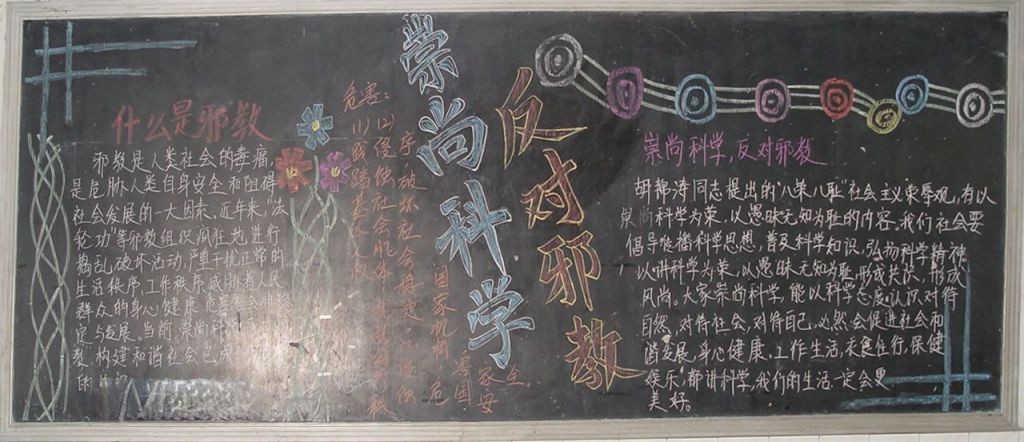 什么是邪教
邪教是人类社会的毒瘤,
是危胁人类自身安全和阻碍
社会发展的一大因素,近年来,"法
轮功"等邪教组织疯狂地进行
捣乱破坏活动,严重干扰正常的
生活秩序,工作秩序,威胁着人民
群众的身心健康,危害社会
定与发展,当前,崇尚科学
教,构建和谐社会已成
的
危害:
(1)践踏基本人权
(2)侵蚀社会肌体
序破坏社会稳定
国家机构
崇尚科学
反对邪教
崇尚科学,反对邪教
胡锦涛同志提出的"八荣八耻"社会主义荣辱观,有以
崇尚科学为荣,以愚昧无知为耻的内容,我们社会要
倡导传播科学思想,普及科学知识,弘扬科学精神
以讲科学为荣,以愚昧无知为耻,形成共识,形成
风尚。大家崇尚科学,能以科学态度认识,对待
自然,对待社会,对待自己,必然会促进社会和
谐发展,身心健康,工作生活,衣食住行,保健
娱乐,都讲科学,我们的生活一定会更
美好。